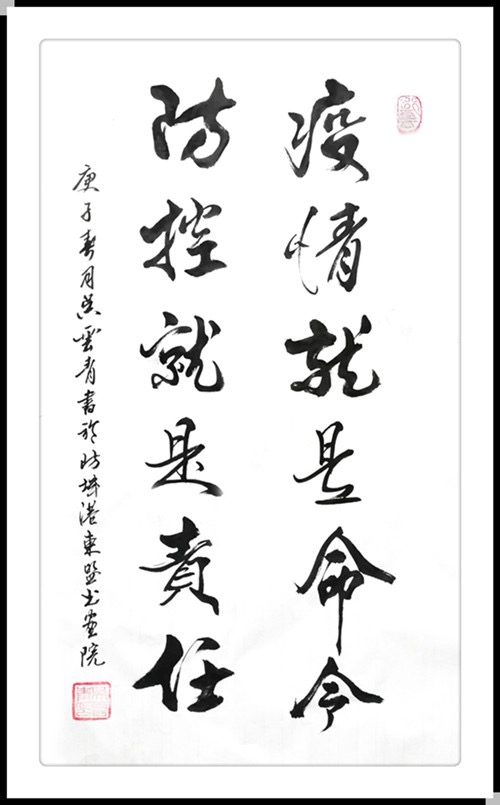 疫情就是命令
防控就是责任
庚子春月吴雲青書於防城港東盟书画院